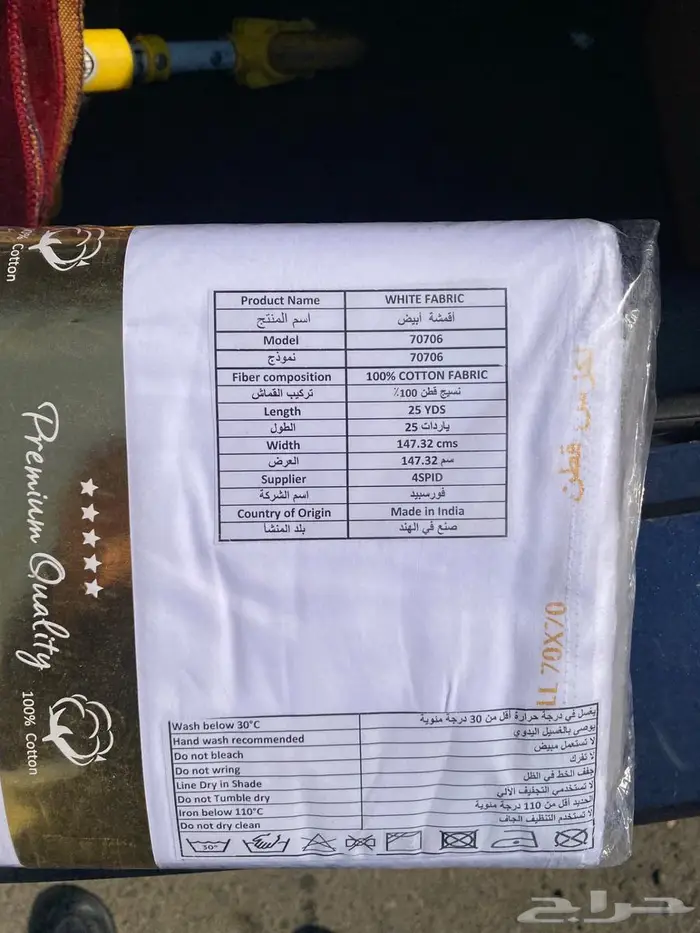 Cotton
Premium Quality
100% Cotton
Product Name WHITE FABRIC
اسم المنتج أقمشة أبيض
Model 70706
نموذج 70706
Fiber composition 100% COTTON FABRIC
تركيب القماش نسيج قطن 100٪
Length 25 YDS
الطول 25 ياردات
Width 147.32 cms
العرض 147.32 سم
Supplier 4SPID
اسم الشركة فورسبيد
Country of Origin Made in India
بلد المنشأ صنع في الهند
قطن
LL 70X70
Wash below 30°C يغسل في درجة حرارة أقل من 30 درجة مئوية
Hand wash recommended يوصى بالغسيل اليدوي
Do not bleach لا تستعمل مبيض
Do not wring لا تفرك
Line Dry in Shade جفف الخط في الظل
Do not Tumble dry لا تستخدمي التجفيف الآلي
Iron below 110°C الحديد أقل من 110 درجة مئوية
Do not dry clean لا تستخدم التنظيف الجاف
30°
حراج